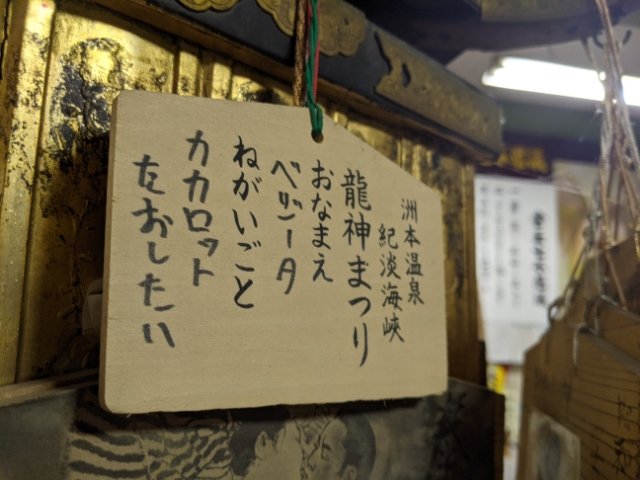 洲本温泉
紀淡海峡
龍神まつり
おなまえ
ベジータ
ねがいごと
カカロット
たおしたい